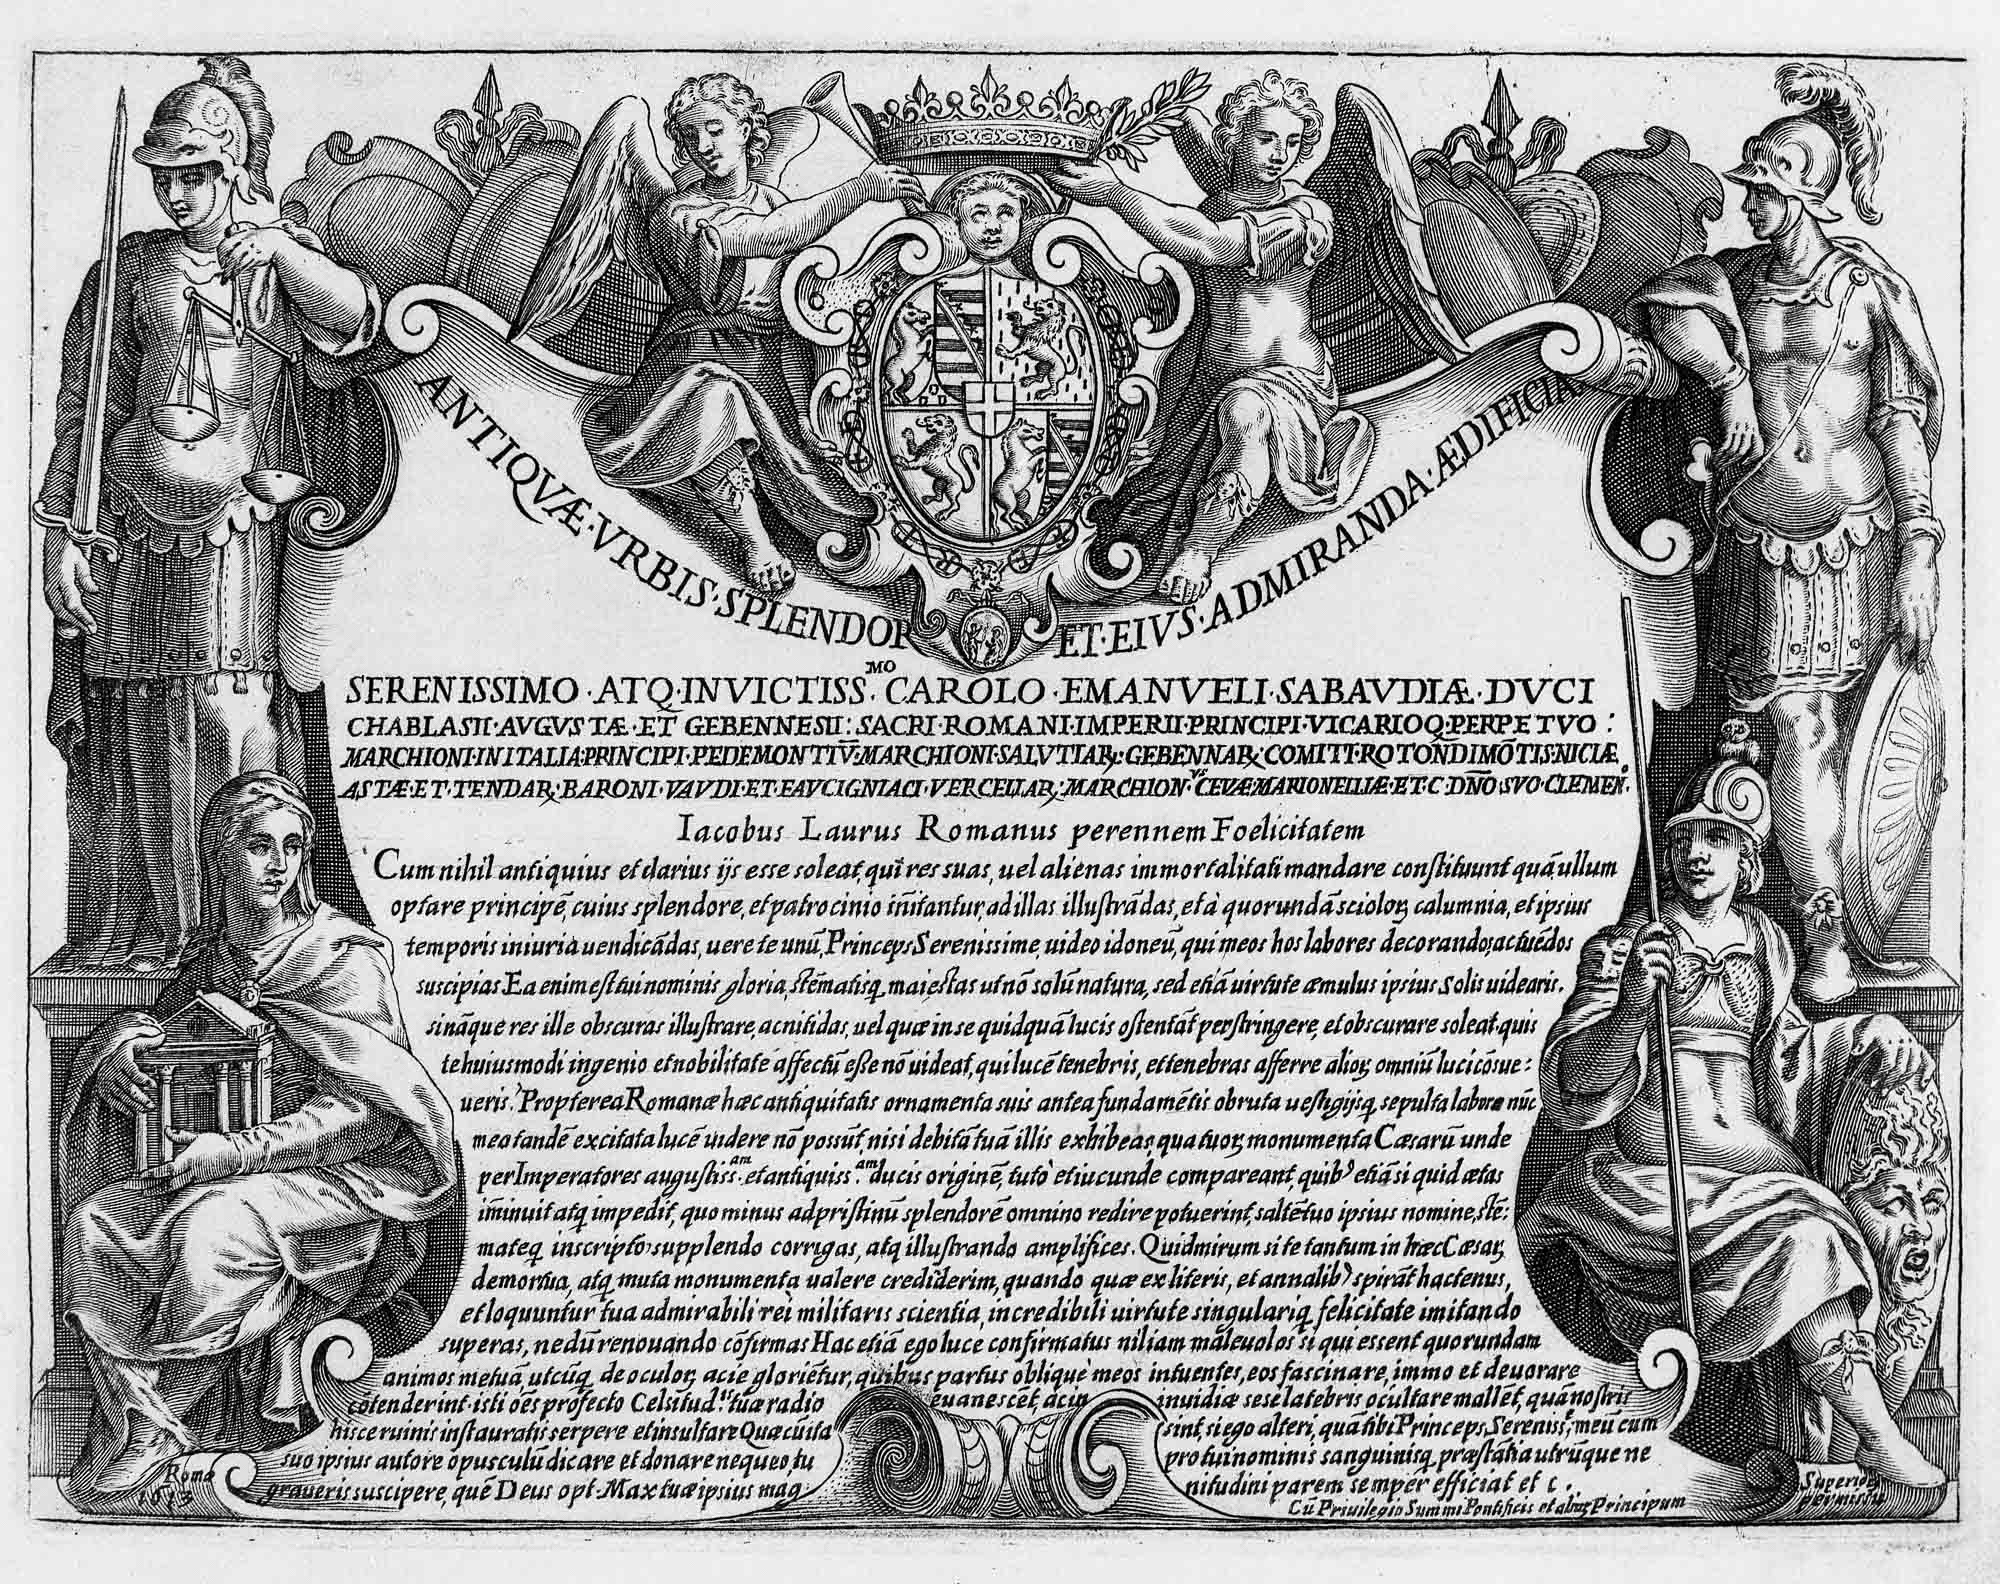 ANTIQVÆ·VRBIS·SPLENDOR ET·EIVS·ADMIRANDA·ÆDIFICIA
SERENISSIMO·ATQ·INVICTISS.MO CAROLO·EMANVELI·SABAVDIÆ·DVCI
CHABLASII·AVGVSTÆ·ET GEBENNESII: SACRI·ROMANI·IMPERII·PRINCIPI·VICARIOQ·PERPETVO:
MARCHIONI·IN ITALIA·PRINCIPI·PEDEMONTIV̄·MARCHIONI·SALVTIAR̨·GEBENNAR̨ COMITI·ROTONDIMŌTIS·NICIÆ
ASTÆ·ET·TENDAR̨·BARONI·VAVDI·ET·FAVCIGNIACI·VERCELLAR̨·MARCHION.VS CEVÆ·MARIONELLIÆ·ET·C·DN̄O·SVO·CLEMEN.o
Iacobus Laurus Romanus perennem Foelicitatem
Cum nihil antiquius et clarius ijs esse soleat, qui res suas, uel alienas immortalitati mandare constituunt quā ullum
optare principē, cuius splendore, et patrocinio in̄itantur, ad illas illustrādas, et à quorundā scioloꝝ calumnia, et ipsius
temporis iniuria uendicādas, uere te unū, Princeps Serenissime, uideo idoneū, qui meos hos labores decorandos, ac tuēdos
suscipias Ea enim est tui nominis gloria, stēmatisq, maiestas ut nō solū natura, sed etiā uirtute æmulus ipsius Solis uidearis.
sināque res ille obscuras illustrare, ac nitidas, uel quæ in se quidquā lucis ostentāt perstringere, et obscurare soleat. quis
te huiusmodi ingenio et nobilitate affectū esse nō uideat, qui lucē tenebris, et tenebras afferre alioꝝ omniū luci cōsue:
ueris? Propterea Romanæ hæc antiquitatis ornamenta suis antea fundamētis obruta uestigijsq, sepulta labore nūc
meo tandē excitata lucē uidere nō possūt, nisi debitā tuā illis exhibeas, qua tuoꝝ monumenta Cæsarū unde
per Imperatores augustiss.am et antiquiss.am ducis originē, tutò et iucunde compareant, quib9 etiā si quid ætas
im̄inuit atq, impedit, quo minus ad pristinū splendorē omnino redire potuerint, saltē tuo ipsius nomine, stē:
mateq, inscripto supplendo corrigas, atq, illustrando amplifices. Quid mirum si te tantum in hæc Cæsaꝝ
demortua, atq, muta monumenta ualere crediderim, quando quæ ex literis, et annalib9 spirāt hactenus,
et loquuntur tua admirabili rei militaris scientia, incredibili uirtute singulariq, felicitate imitando
superas, nedū renouando cōfirmas Hac etiā ego luce confirmatus niliam maleuolos si qui essent quorundam
animos metuā, utcūq, de oculoꝝ acie gloriētur, quibus partus obliquè meos intuentes, eos fascinare, immo et deuorare
cōtenderint. isti ōes profecto Celsitud.is tuæ radio euanescēt, ac in inuidiæ sese latebris ocultare mallēt, quā nostris
hisce ruinis instauratis serpere et insultare Quæ cū ita sint, si ego alteri, quā tibi Princeps Sereniss.e, meū cum
suo ipsius autore opusculū dicare et donare nequeo, tu pro tui nominis sanguinisq, præstātia utrūque ne
graueris suscipere, quē Deus opt. Max tuæ ipsius mag nitudini parem semper efficiat et c.
Cū Priuilegio Summi Pontificis et alioꝝ Principum
Romæ
1613
Superiorū
permissu